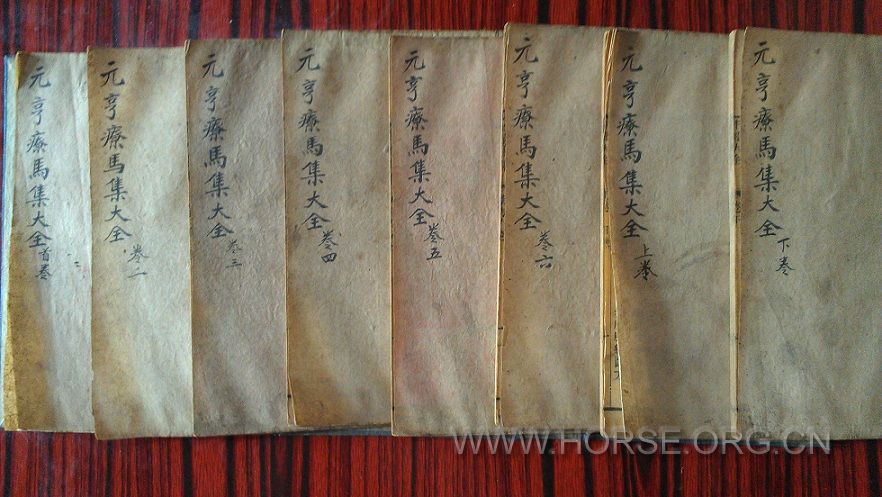 元亨療馬集大全
首卷
元亨療馬集大全
卷二
元亨療馬集大全
卷三
元亨療馬集大全
卷四
元亨療馬集大全
卷五
元亨療馬集大全
卷六
元亨療馬集大全
上卷
元亨療馬集大全
下卷
WWW.HORSE.ORG.CN